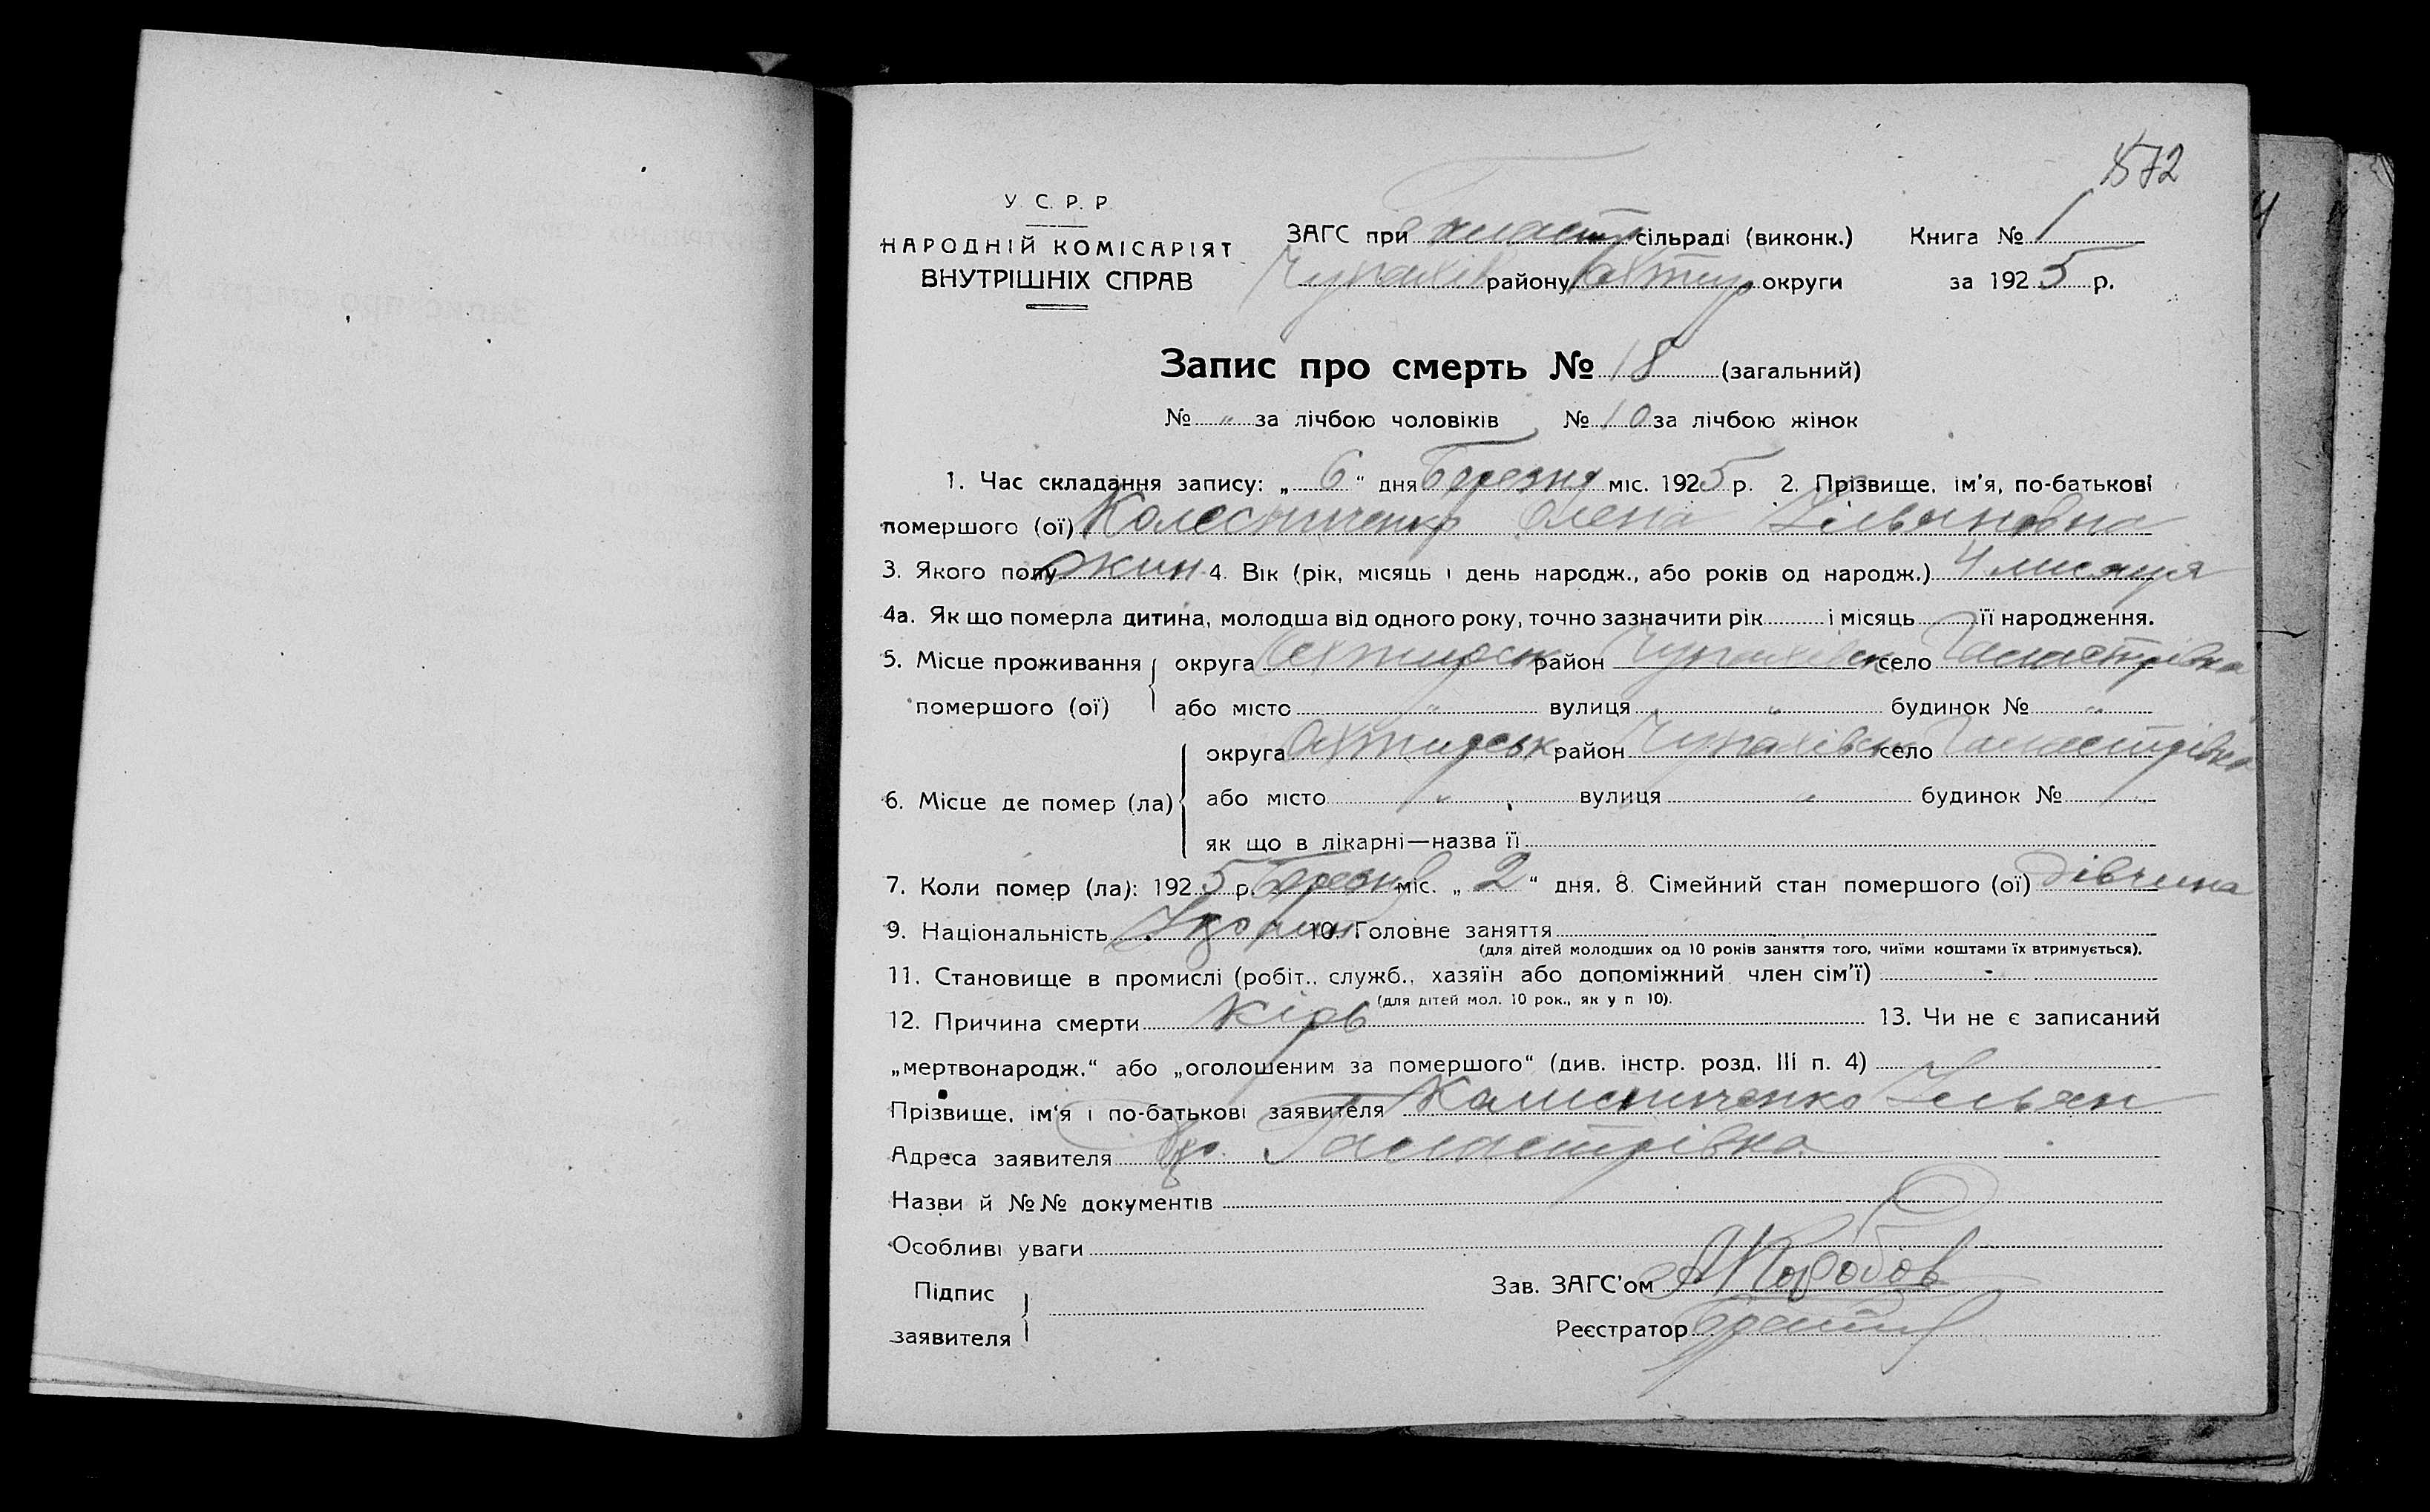 572
У. С. Р. Р.
НАРОДНІЙ КОМІСАРІЯТ
ВНУТРІШНІХ СПРАВ
ЗАГС при сільраді (виконк.) Книга № 1
Чупахів району Охтир округи за 1925 р.
Запис про смерть № 18 (загальний)
№ „ за лічбою чоловіків № 10 за лічбою жінок
1. Час складання запису: „ 6 “ дня Березня міс. 1925 р. 2. Прізвище, ім'я, по-батькові
помершого (ої) Колесниченко Олена Ульяновна
3. Якого полу жин 4. Вік (рік, місяць і день народж., або років од народж.) 4 мисяця
4а. Як що померла дитина, молодша від одного року, точно зазначити рік і місяць її народження.
5. Місце проживання округа Охтирськ район Чупахівськ село
помершого (ої) або місто „ вулиця „ будинок № „
округа Охтирськ район Чупахівськ село
6. Місце де помер (ла)
або місто „ вулиця „ будинок №
як що в лікарні—назва її
7. Коли помер (ла): 1925 р. Березня міс. „ 2 “ дня. 8. Сімейний стан помершого (ої) дівчина
9. Національність 10. Головне заняття
(для дітей молодших од 10 років заняття того, чиїми коштами їх втримується).
11. Становище в промислі (робіт., служб., хазяїн або допоміжний член сім'ї) -
(для дітей мол. 10 рок., як у п 10).
12. Причина смерти Кірь 13. Чи не є записаний
„мертвонародж.“ або „оголошеним за помершого“ (див. інстр. розд. III п. 4)
Прізвище, ім'я і по-батькові заявителя Калисниченко Ульян
Адреса заявителя
Назви й №№ документів
Особливі уваги
Підпис
заявителя
Зав. ЗАГС'ом
Реєстратор